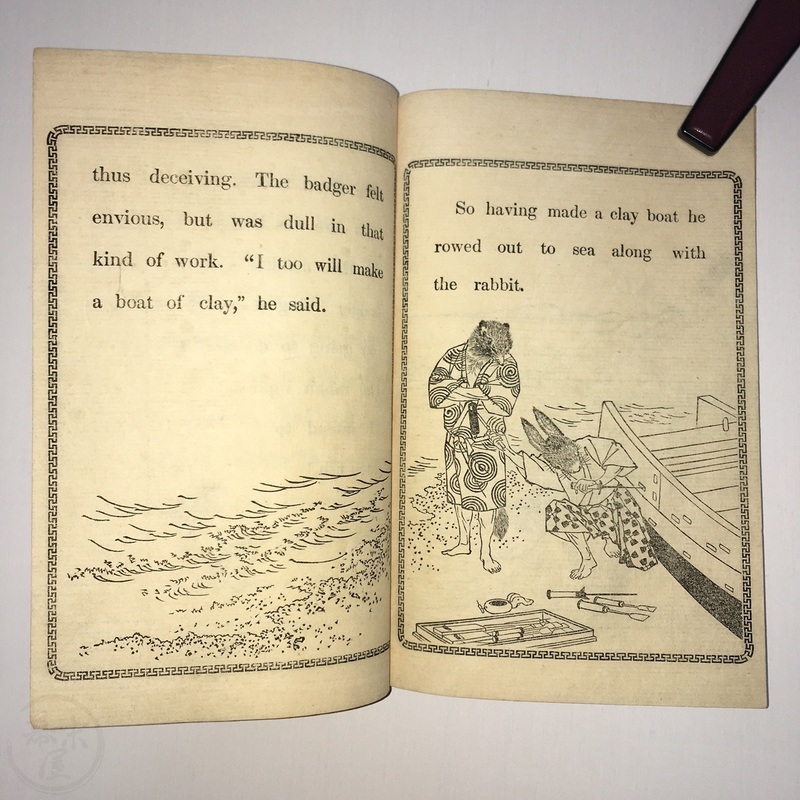 thus deceiving. The badger felt
envious, but was dull in that
kind of work. “I too will make
a boat of clay,” he said.
So having made a clay boat he
rowed out to sea along with
the rabbit.